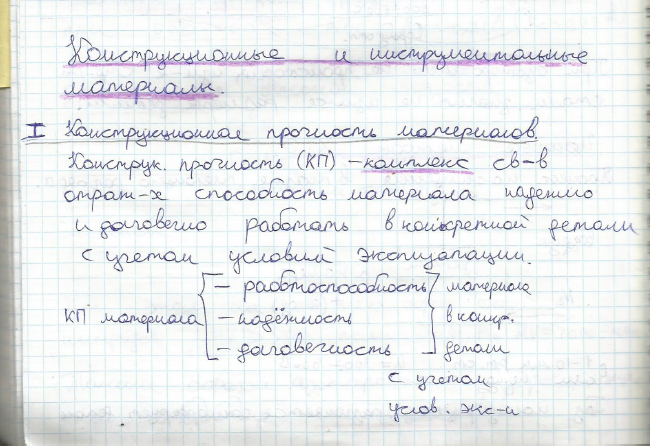 Конструкционные и инструментальные
материалы.
I Конструкционная прочность материалов.
Конструк. прочность (КП) – комплекс св-в
отраж-х способность материала надежно
и долговечно работать в конкретной детали
с учетом условий эксплуатации.
КП материала
– работоспособность
– надёжность
– долговечность
материала
в конкр.
детали
с учетом
услов. экс-и